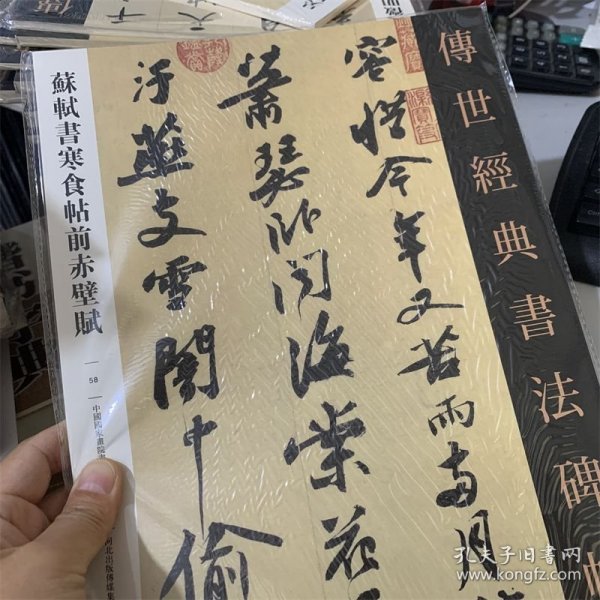 傳世經典書法碑
容惜今年又苦雨兩月
蕭瑟卧聞海棠花
汙燕支雪闇中偷
蘇軾書寒食帖前赤壁賦
58
中國國家畫院
河北出版傳媒集
孔夫子旧书网
www.kongfz.com